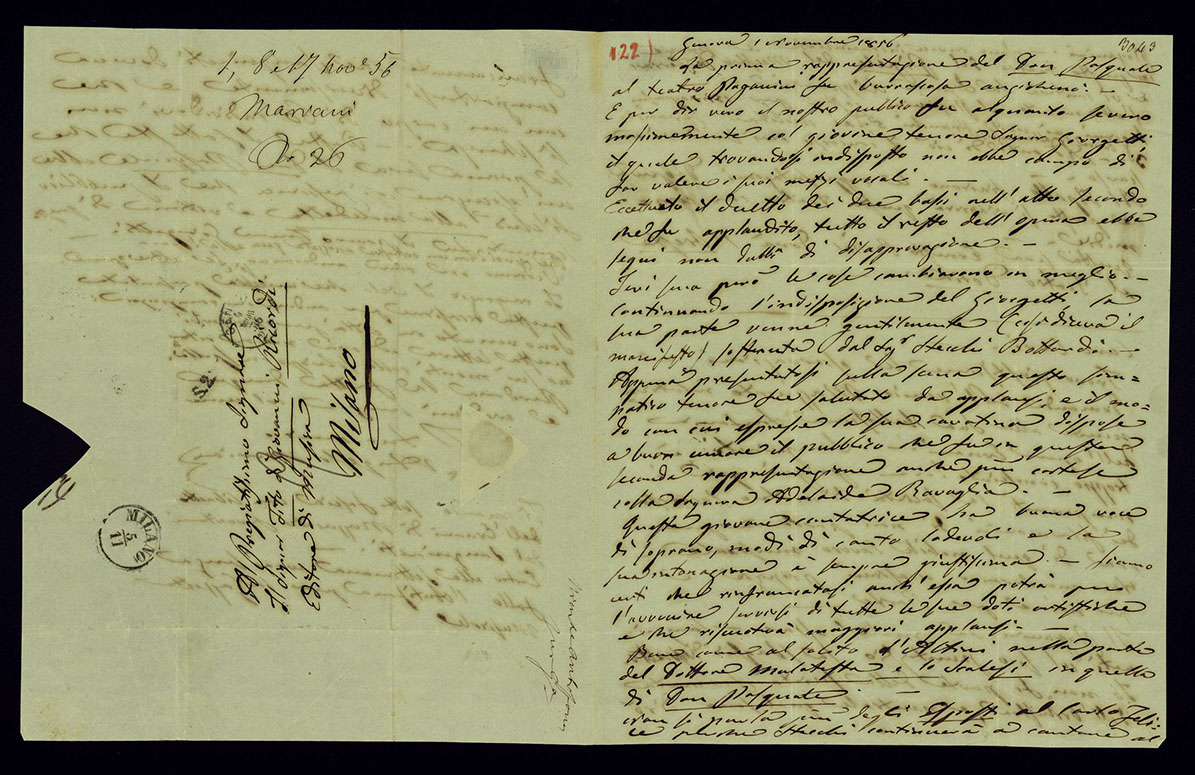 1, 8 e 17 nov.e 56
Marvani
No 26
Al Pregiatissimo Signore
Il Signor Tito di Giovanni Ricordi
Editore di Musica
Milano
S.2.
MILANO
5
11
122)
3043
Genova 1 Novembre 1856
La prima rappresentazione del Don Pasquale
al teatro Paganini fu burrascosa anzichenò. -
E per dir vero il nostro pubblico fu alquanto severo
massimamente col giovine tenore Signor Giorgetti
il quale trovandosi indisposto non ebbe campo di
far valere i suoi mezzi vocali. -
Eccettuato il duetto dei due bassi nell'atto secondo
che fu applaudito, tutto il resto dell'opera ebbe
segni non dubbi di disapprovazione. -
Ieri sera però le cose cambiarono in meglio. -
Continuando l'indisposizione del Giorgetti la
sua parte venne gentilmente (così diceva il
manifesto) sostenuta dal Sigr Stecchi Bottardi. -
Appena presentatosi sulla scena questo sim-
patico tenore fu salutato da applausi, e il mo-
do con cui espresse la sua cavatina dispose
a buon umore il pubblico che fu in questa
seconda rappresentazione anche più cortese
colla signora Adelaide Ravaglia. -
Questa giovane cantatrice ha buona voce
di soprano, modi di canto lodevoli e la
sua intonazione è sempre giustissima. - Siamo
certi che rinfrancatasi anch'essa potrà per
l'avvenire servirsi di tutte le sue doti artistiche
e che riscuoterà maggiori applausi. -
Bene come al solito d'Altini nella parte
del Dottore Malatesta e lo Scalesi in quella
di Don Pasquale. -
non si parla più degli Esposti al Carlo Feli-
ce perché Stecchi continuerà a cantare al